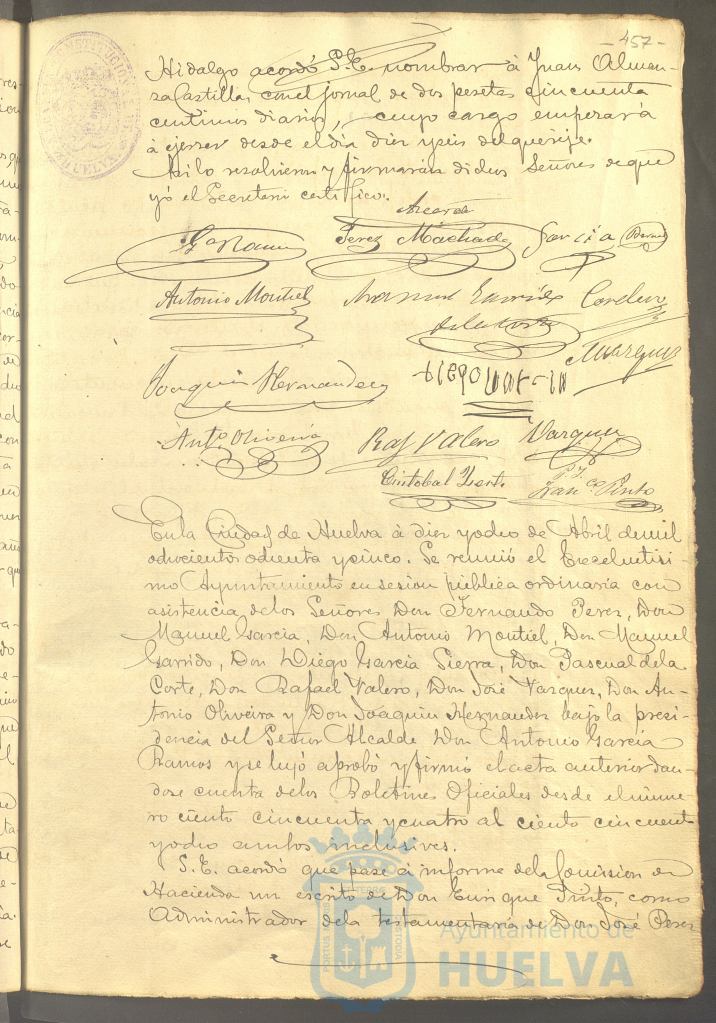 -457-
Hidalgo acordó S.E. nombrar à Juan Alman-
sa Castilla, con el jornal de dos pesetas cincuenta
centimos diarios, cuyo cargo empezará
à ejercer desde el dia diez y seis del que rije.
Asi lo resolvieron y firmarán dichos Señores de que
yó el Secretario certifico.
Perez Machado
Garcia
Antonio Montiel
Manuel Garrido
Cordero
de la Corte
Marquez
Joaquin Hernandez
Antº Oliveira
Raf Valero
Vazquez
Cristobal
Franco Pinto
En la Ciudad de Huelva à diez y ocho de Abril de mil
ochocientos ochenta y cinco. Se reunió el Excelentisi-
mo Ayuntamiento en sesion pública ordinaria con
asistencia de los Señores Don Fernando Perez, Don
Manuel Garcia, Don Antonio Montiel, Don Manuel
Garrido, Don Diego Garcia Sierra, Don Pascual de la
Corte, Don Rafael Valero, Don José Vazquez, Don An-
tonio Oliveira y Don Joaquin Hernandez bajo la presi-
dencia del Señor Alcalde Don Antonio Garcia
Ramos y se leyó aprobó y firmó el acta anterior dan-
dose cuenta de los Boletines Oficiales desde el núme-
ro ciento cincuenta y cuatro al ciento cincuenta
y ocho ambos inclusives.
S.E. acordó que pase à informe de la Comision de
Hacienda un escrito de Don Enrique Pinto, como
Administrador de la testamentaría de Don José Perez
Ayuntamiento de
HUELVA